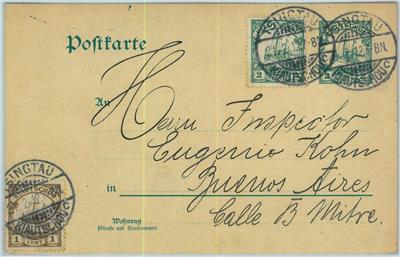 Postkarte
TSINGTAU
KIAUTSCHOU
2
TSINGTAU
KIAUTSCHOU
An
Herrn Inspector
Eugenio Kohn
in
Buenos Aires
Calle B. Mitre.
Wohnung
(Straße und Hausnummer)
TSINGTAU
KIAUTSCHOU
1 CENT 1